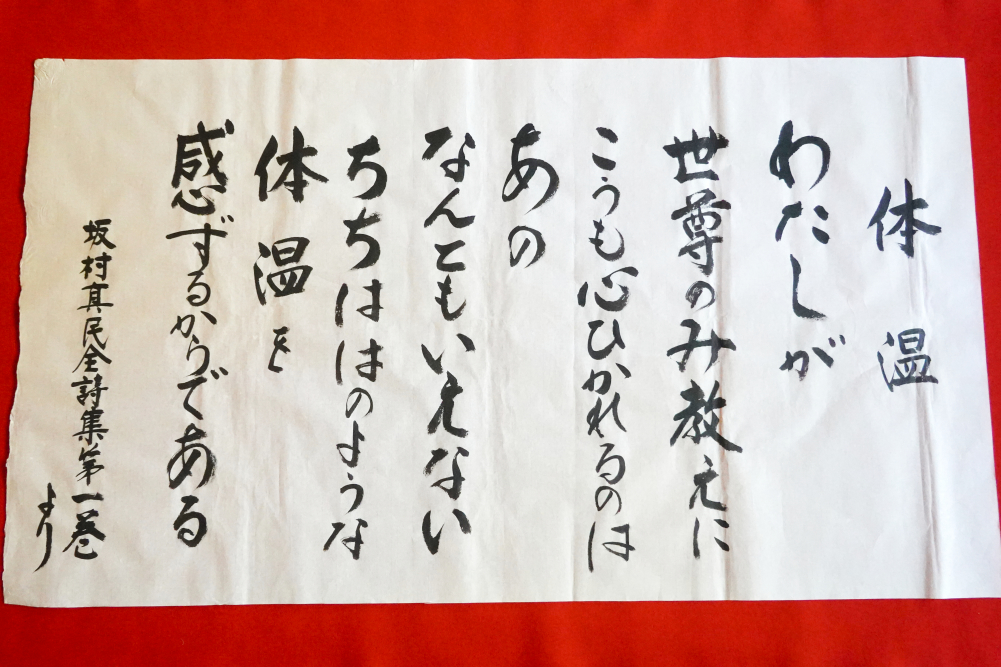 体温
わたしが
世尊のみ教えに
こうも心ひかれるのは
あの
なんともいえない
ちちははのような
体温を
感ずるからである
坂村真民全詩集第一巻
より